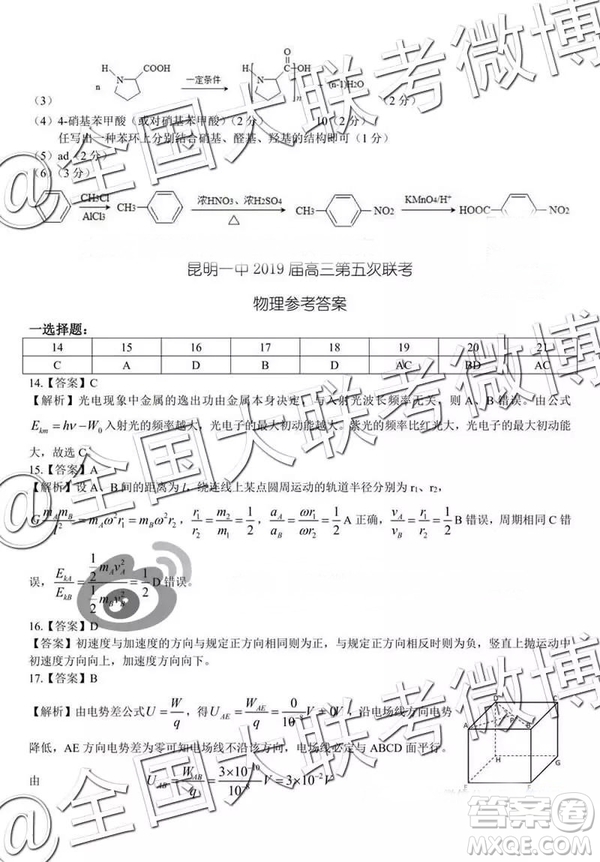 n H N COOH 一定条件 H N C O OH n + (n-1)H2O
（3） （2 分）
（4）4-硝基苯甲酸（或对硝基苯甲酸）（2 分） 10（2 分）
任写由一种苯环上分别结合硝基、醛基、羟基的结构即可（1 分）
（5）ad（2 分）
（6）（3 分）
CH3Cl AlCl3 CH3 浓HNO3、浓H2SO4 △ CH3 NO2 KMnO4/H+ HOOC NO2
昆明一中 2019 届高三第五次联考
物理参考答案
一选择题：
14 15 16 17 18 19 20 21
C A D B D AC BD AC
14.【答案】C
【解析】光电现象中金属的逸出功由金属本身决定，与入射光波长频率无关，则 A、B 错误。由公式
Ekm = hν − W0 入射光的频率越大，光电子的最大初动能越大。紫光的频率比红光大，光电子的最大初动能
大，故选 C
15.【答案】A
【解析】设 A、B 间的距离为 l，绕连线上某点圆周运动的轨道半径分别为 r1、r2，
G mAmB/l² = mAω²r1 = mBω²r2，r1/r2 = m2/m1 = 1/2，aA/aB = ωr1/ωr2 = 1/2 A 正确，vA/vB = ωr1/ωr2 = 1/2 B 错误，周期相同 C 错
误，EkA/EkB = ½mAvA²/½mBvB² = 1/2 D 错误。
16.【答案】D
【答案】初速度与加速度的方向与规定正方向相同则为正，与规定正方向相反则为负，竖直上抛运动中
初速度方向向上，加速度方向向下。
17.【答案】B
【解析】由电势差公式 U = W/q，得 UAE = WAE/q = 0/10⁻⁸ V = 0，沿电场线方向电势
降低，AE 方向电势差为零可知电场线不沿该方向，电场线必定与 ABCD 面平行。
由 UAB = WAB/q = 3×10⁻¹⁰/10⁻⁸ V = 3×10⁻² V
H
G
E
F
@全国大联考微博
@全国大联考微博
@全国大联考微博
答案圈
MXQE.COM